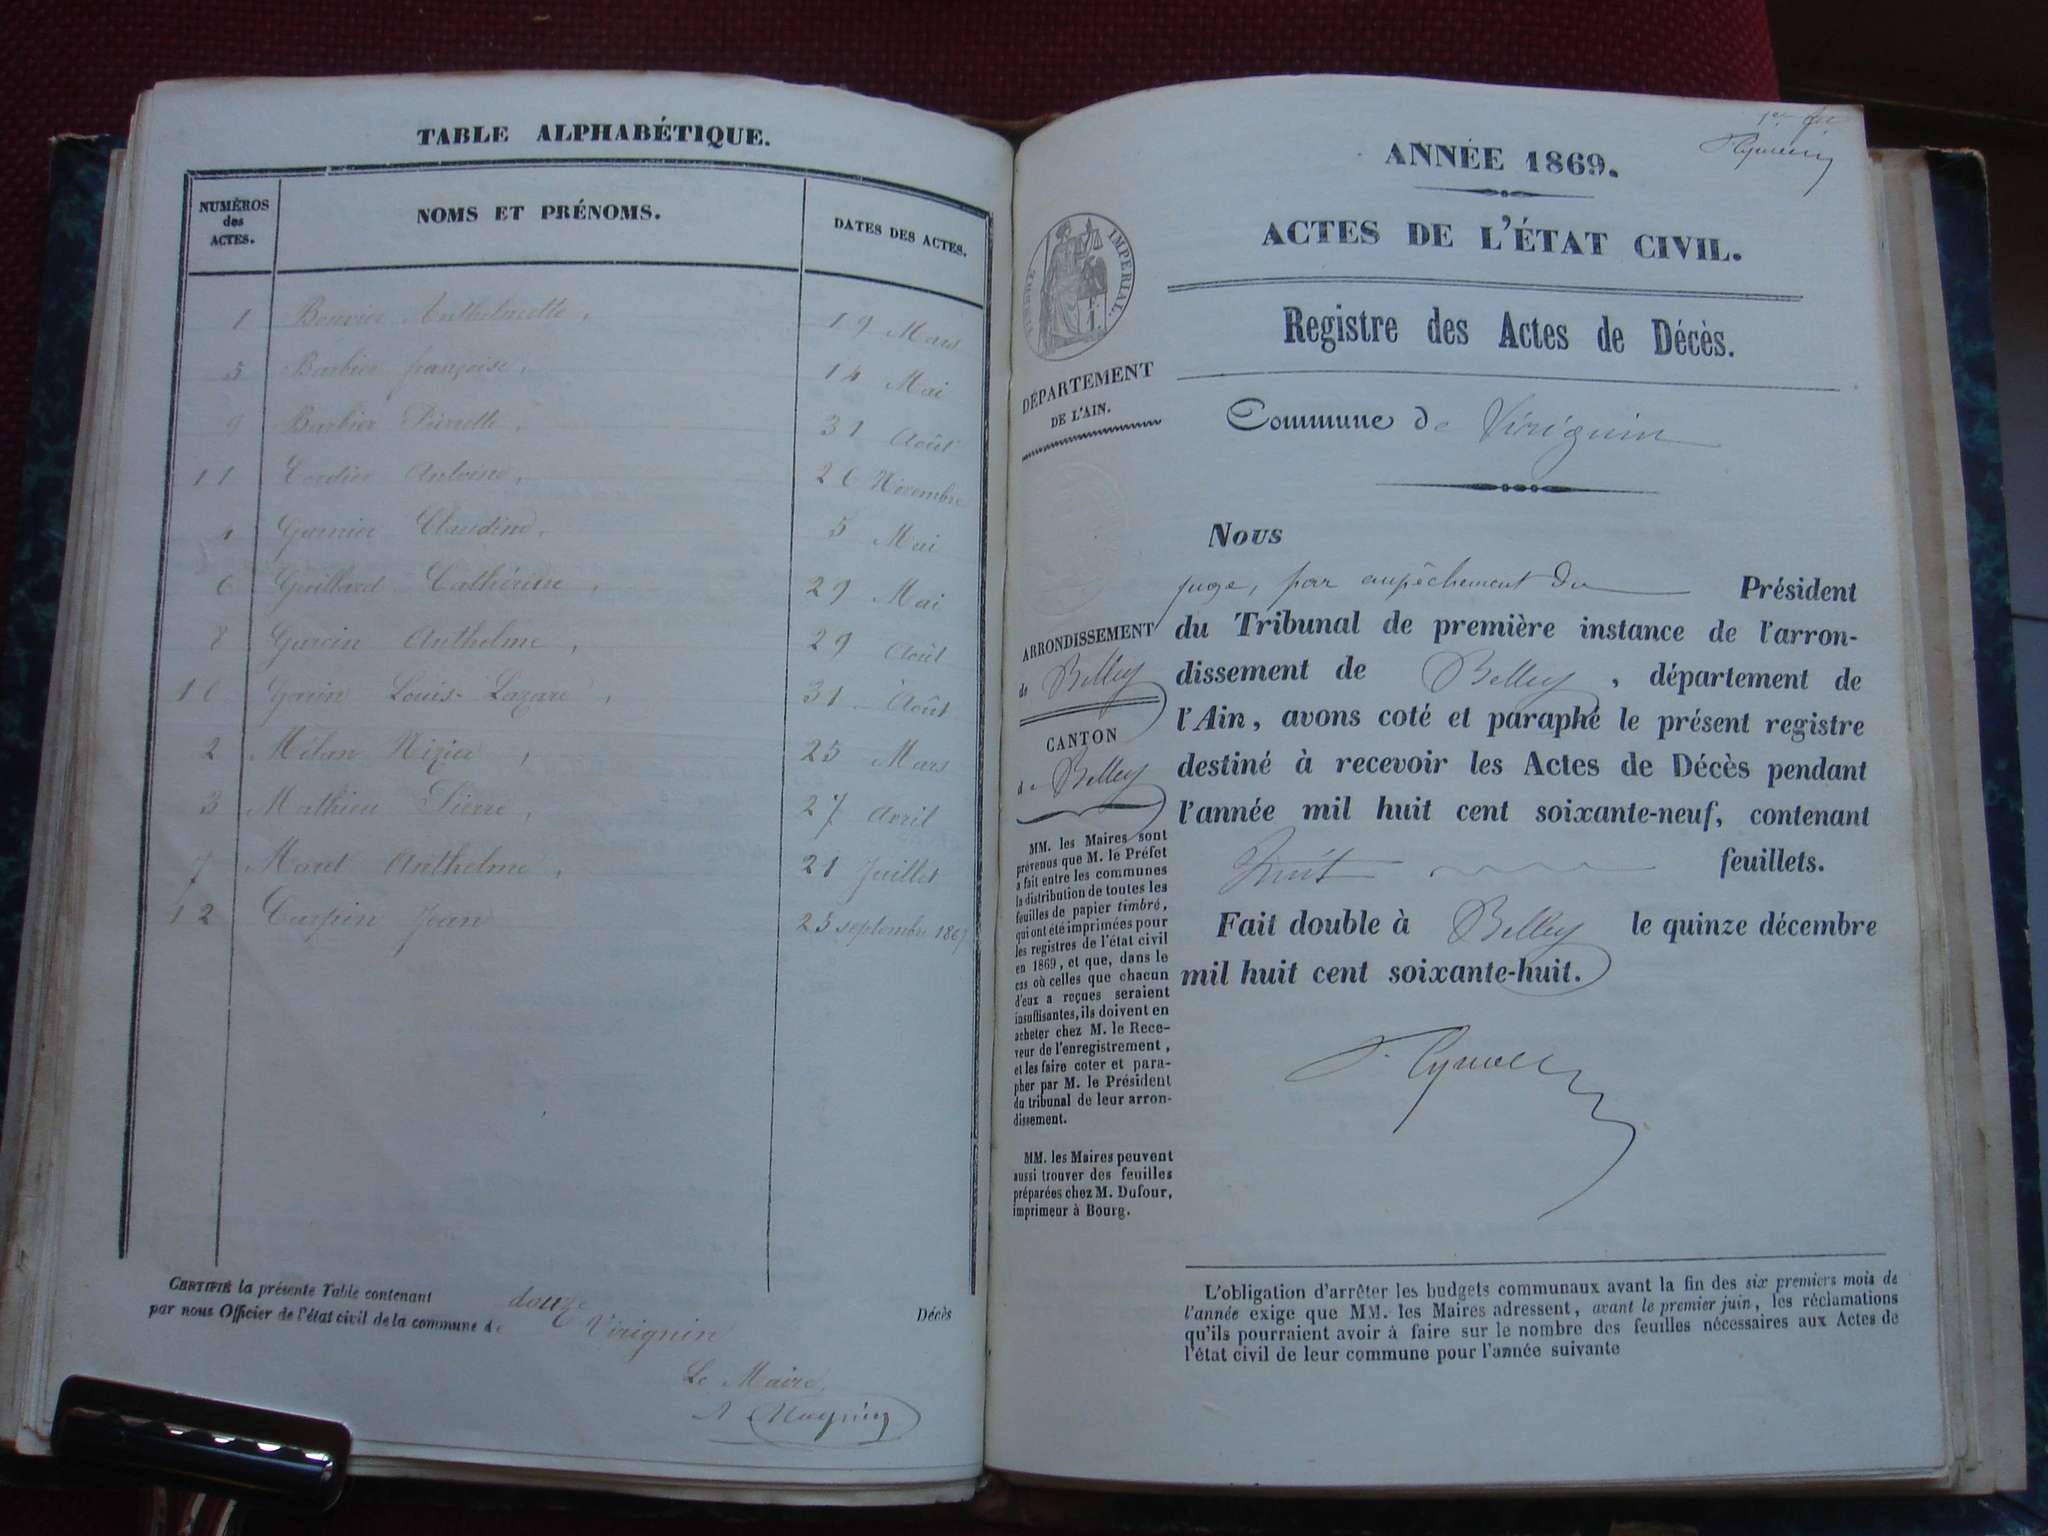 TABLE ALPHABÉTIQUE.
NUMÉROS
des
ACTES.
NOMS ET PRÉNOMS.
DATES DES ACTES.
1 Bouvier Anthelmette, 19 Mars
5 Barbier françoise, 14 Mai
9 Barbier Pierrette, 31 Août
11 Cordier Antoine, 26 Novembre
4 Garnier Claudine, 5 Mai
6 Gaillard Cathérine, 29 Mai
8 Garin Anthelme, 29 Août
10 Garin Louis-Lazare, 31 Août
2 Milan Nizier, 25 Mars
3 Mathieu Pierre, 27 Avril
7 Moret Anthelme, 21 Juillet
12 Carpin Jean 23 septembre 1867
CERTIFIÉ la présente Table contenant douze Décès
par nous Officier de l'état civil de la commune de Virignin
Le Maire,
1er
ANNÉE 1869.
ACTES DE L'ÉTAT CIVIL.
TIMBRE IMPERIAL
Registre des Actes de Décès.
DÉPARTEMENT
DE L'AIN.
Commune de Virignin
ARRONDISSEMENT
de Belley
CANTON
de Belley
MM. les Maires sont
prévenus que M. le Préfet
a fait entre les communes
la distribution de toutes les
feuilles de papier timbré,
qui ont été imprimées pour
les registres de l'état civil
en 1869, et que, dans le
cas où celles que chacun
d'eux a reçues seraient
insuffisantes, ils doivent en
acheter chez M. le Rece-
veur de l'enregistrement,
et les faire coter et para-
pher par M. le Président
du tribunal de leur arron-
dissement.
MM. les Maires peuvent
aussi trouver des feuilles
préparées chez M. Dufour,
imprimeur à Bourg.
Nous
juge, par empêchement du Président
du Tribunal de première instance de l'arron-
dissement de Belley, département de
l'Ain, avons coté et paraphé le présent registre
destiné à recevoir les Actes de Décès pendant
l'année mil huit cent soixante-neuf, contenant
huit feuillets.
Fait double à Belley le quinze décembre
mil huit cent soixante-huit.
L'obligation d'arrêter les budgets communaux avant la fin des six premiers mois de
l'année exige que MM. les Maires adressent, avant le premier juin, les réclamations
qu'ils pourraient avoir à faire sur le nombre des feuilles nécessaires aux Actes de
l'état civil de leur commune pour l'année suivante